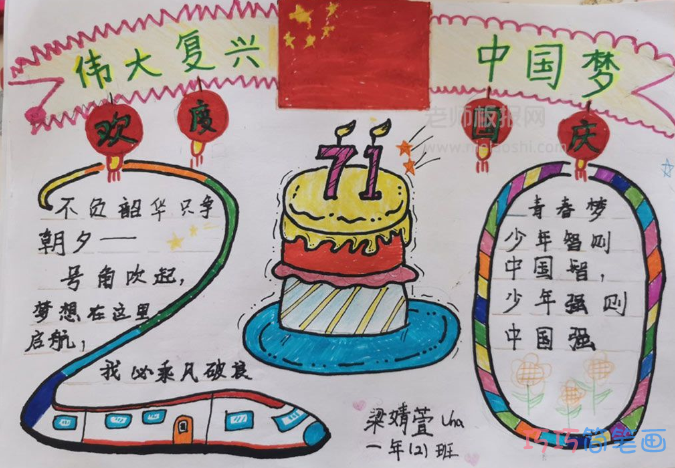 伟大复兴
中国梦
欢度国庆
71
不负韶华只争
朝夕一
号角吹起，
梦想在这里
启航，
我必乘风破浪
青春梦
少年智则
中国智，
少年强则
中国强
梁婧萱 Una
一年(2)班
老师板报网
巧巧简笔画